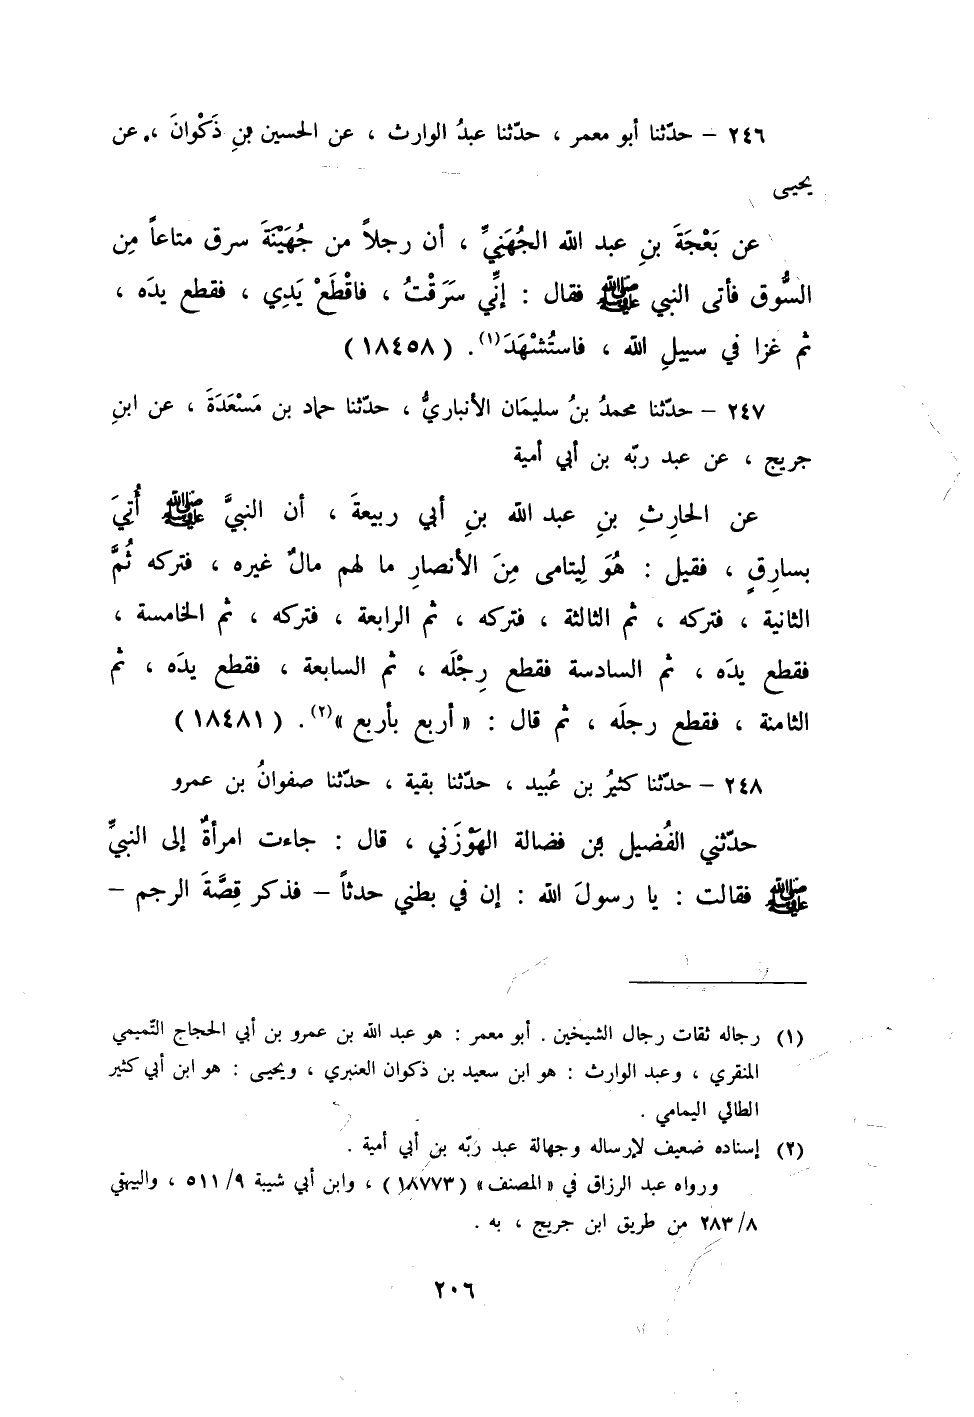 ٢٤٦ – حدّثنا أبو معمر ، حدّثنا عبدُ الوارث ، عن الحسين بنِ ذَكْوانَ ، عن
يحيى
عن بَعْجَةَ بنِ عبد الله الجُهَنِيِّ ، أن رجلاً من جُهَيْنَةَ سرق متاعاً مِن
السُّوق فأتى النبي ﷺ فقال : إنِّي سَرَقْتُ ، فاقْطَعْ يَدِي ، فقطع يدَه ،
ثم غزا في سبيلِ الله ، فاستُشْهَدَ(١) . ( ١٨٤٥٨ )
٢٤٧ – حدّثنا محمدُ بنُ سليمَان الأنباريُّ ، حدّثنا حماد بن مَسْعَدَةَ ، عن ابنِ
جريج ، عن عبد ربّه بن أبي أمية
عن الحارِثِ بنِ عبد الله بنِ أبي ربيعةَ ، أن النبيَّ ﷺ أُتِيَ
بسارِقٍ ، فقيل : هُوَ لِيتامى مِنَ الأنصارِ ما لهم مالٌ غيره ، فتركه ثُمَّ
الثانية ، فتركه ، ثم الثالثة ، فتركه ، ثم الرابعة ، فتركه ، ثم الخامسة ،
فقطع يدَه ، ثم السادسة فقطع رِجْلَه ، ثم السابعة ، فقطع يدَه ، ثم
الثامنة ، فقطع رجلَه ، ثم قال : « أربع بأربع »(٢) . ( ١٨٤٨١ )
٢٤٨ – حدّثنا كثيرُ بن عُبيد ، حدّثنا بقية ، حدّثنا صفوانُ بن عمرو
حدّثني الفُضيل بن فضالة الهَوْزَني ، قال : جاءت امرأةٌ إلى النبيِّ
ﷺ فقالت : يا رسولَ الله : إن في بطني حدثاً – فذكر قِصَّةَ الرجم –
(١) رجاله ثقات رجال الشيخين . أبو معمر : هو عبد الله بن عمرو بن أبي الحجاج التّميمي
المنقري ، وعبد الوارث : هو ابن سعيد بن ذكوان العنبري ، ويحيى : هو ابن أبي كثير
الطائي اليمامي .
(٢) إسناده ضعيف لإرساله وجهالة عبد ربّه بن أبي أمية .
ورواه عبد الرزاق في « المصنف » ( ١٨٧٧٣ ) ، وابن أبي شيبة ٥١١/٩ ، والبيهقي
٢٨٣/٨ من طريق ابن جريج ، به .
٢٠٦